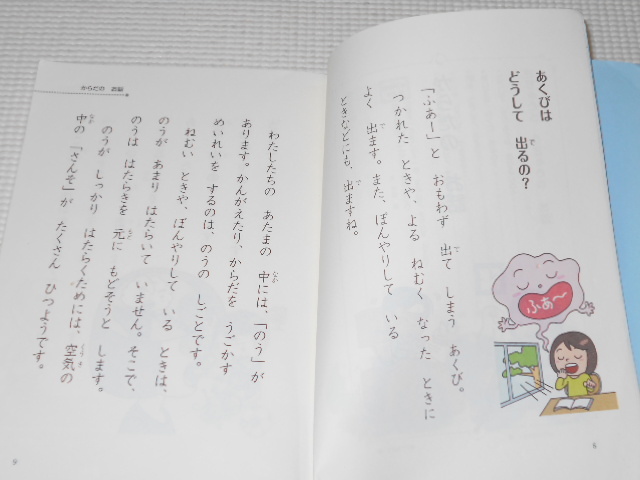 あくびは
どうして 出るの?
「ふあー」と おもわず 出て しまう あくび。
つかれた ときや、よる ねむく なった ときに
よく 出ます。また、ぼんやりして いる
ときなどにも、出ますね。
ふあ〜
8
からだの お話
わたしたちの あたまの 中には、「のう」が
あります。かんがえたり、からだを うごかす
めいれいを するのは、のうの しごとです。
ねむい ときや、ぼんやりして いる ときは、
のうが あまり はたらいて いません。そこで、
のうは はたらきを 元に もどそうと します。
のうが しっかり はたらくためには、空気の
中の 「さんそ」が たくさん ひつようです。
9